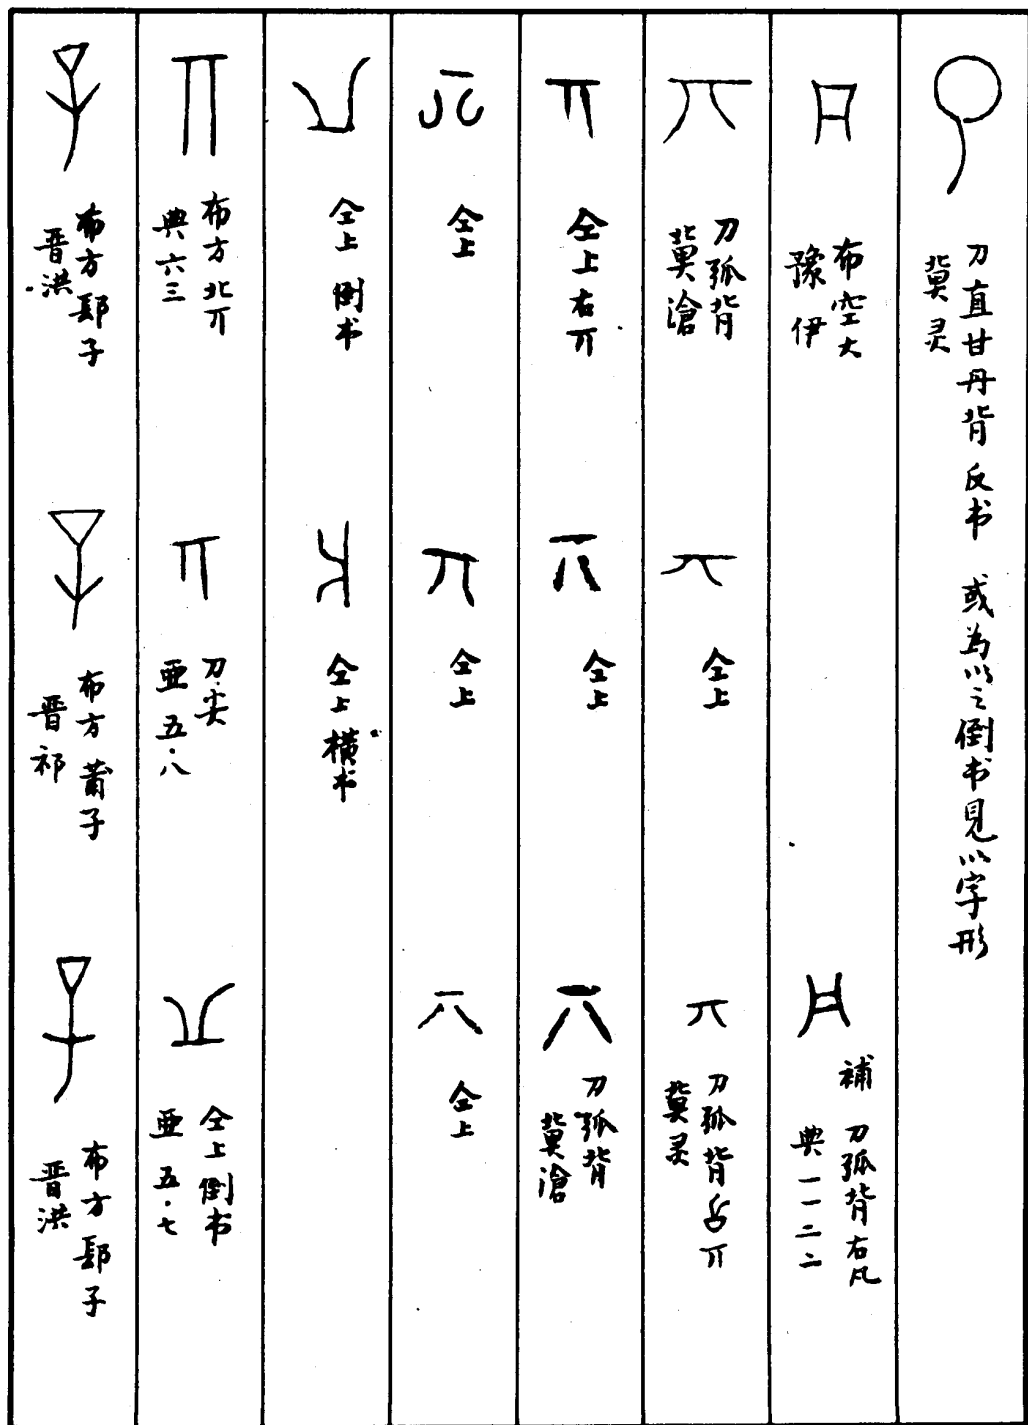 刀直甘丹背 反书 或为以之倒书见以字形
冀灵
布空大
豫伊
補 刀弧背右凡
典一一二二
刀弧背
冀滄
仝上
刀弧背 丌
冀灵
仝上右丌
仝上
刀弧背
冀滄
仝上
仝上
仝上
仝上 倒书
仝上 橫书
布方 北丌
典六三
刀·尖
亜 五·八
仝上 倒书
亜 五·七
布方 郥子
晋洪
布方 莆子
晋祁
布方 郥子
晋洪